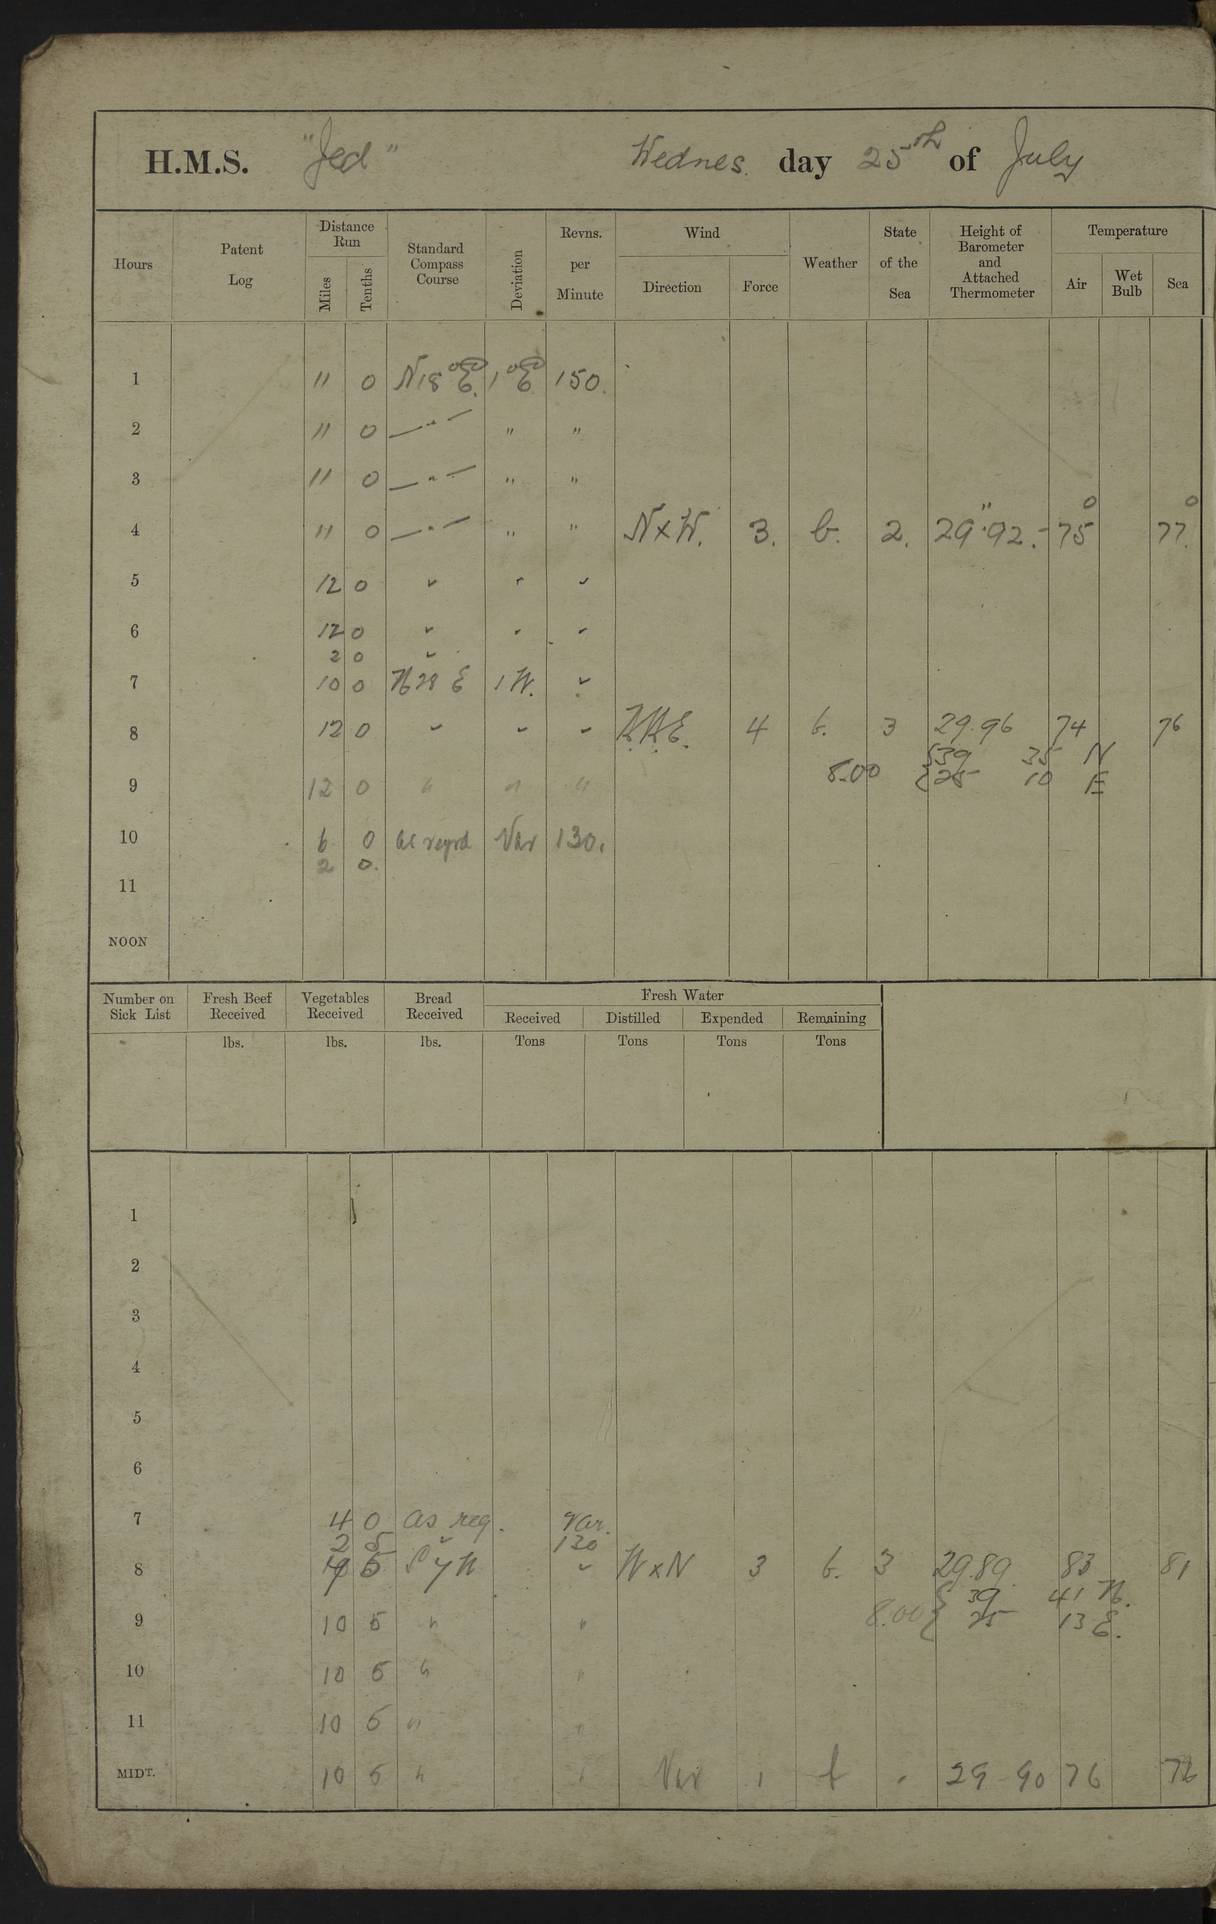 H.M.S. "Jed" Wednes. day 25th of July
Hours Patent Log Distance Run Miles Tenths Standard Compass Course Deviation Revns. per Minute Wind Direction Force Weather State of the Sea Height of Barometer and Attached Thermometer Temperature Air Wet Bulb Sea
1 11 0 N18°E. 1°E 150.
2 11 0 — " — " "
3 11 0 — " — " "
4 11 0 — " — " " N x W. 3. b. 2. 29".92. - 75° 77°
5 12 0 " " "
6 12 0 " " "
2 0 "
7 10 0 N28 E 1 W. "
8 12 0 " " " 4 b. 3 29.96 74 76
8.00 { 39 35 N
{ 25 10 E
9 12 0 " " "
10 6 0 as reqrd Var 130.
2 0.
11
NOON
Number on Sick List Fresh Beef Received Vegetables Received Bread Received Fresh Water
Received Distilled Expended Remaining
lbs. lbs. lbs. Tons Tons Tons Tons
1
2
3
4
5
6
7 4 0 as req. Var.
2 5 " 130
8 5 " W x N 3 b. 3 29.89 83 81
8.00 { 39 41 N.
{ 25 13 E.
9 10 5 " "
10 10 5 " "
11 10 5 " "
MIDT. 10 5 " " Var 1 b 29 - 90 76 76